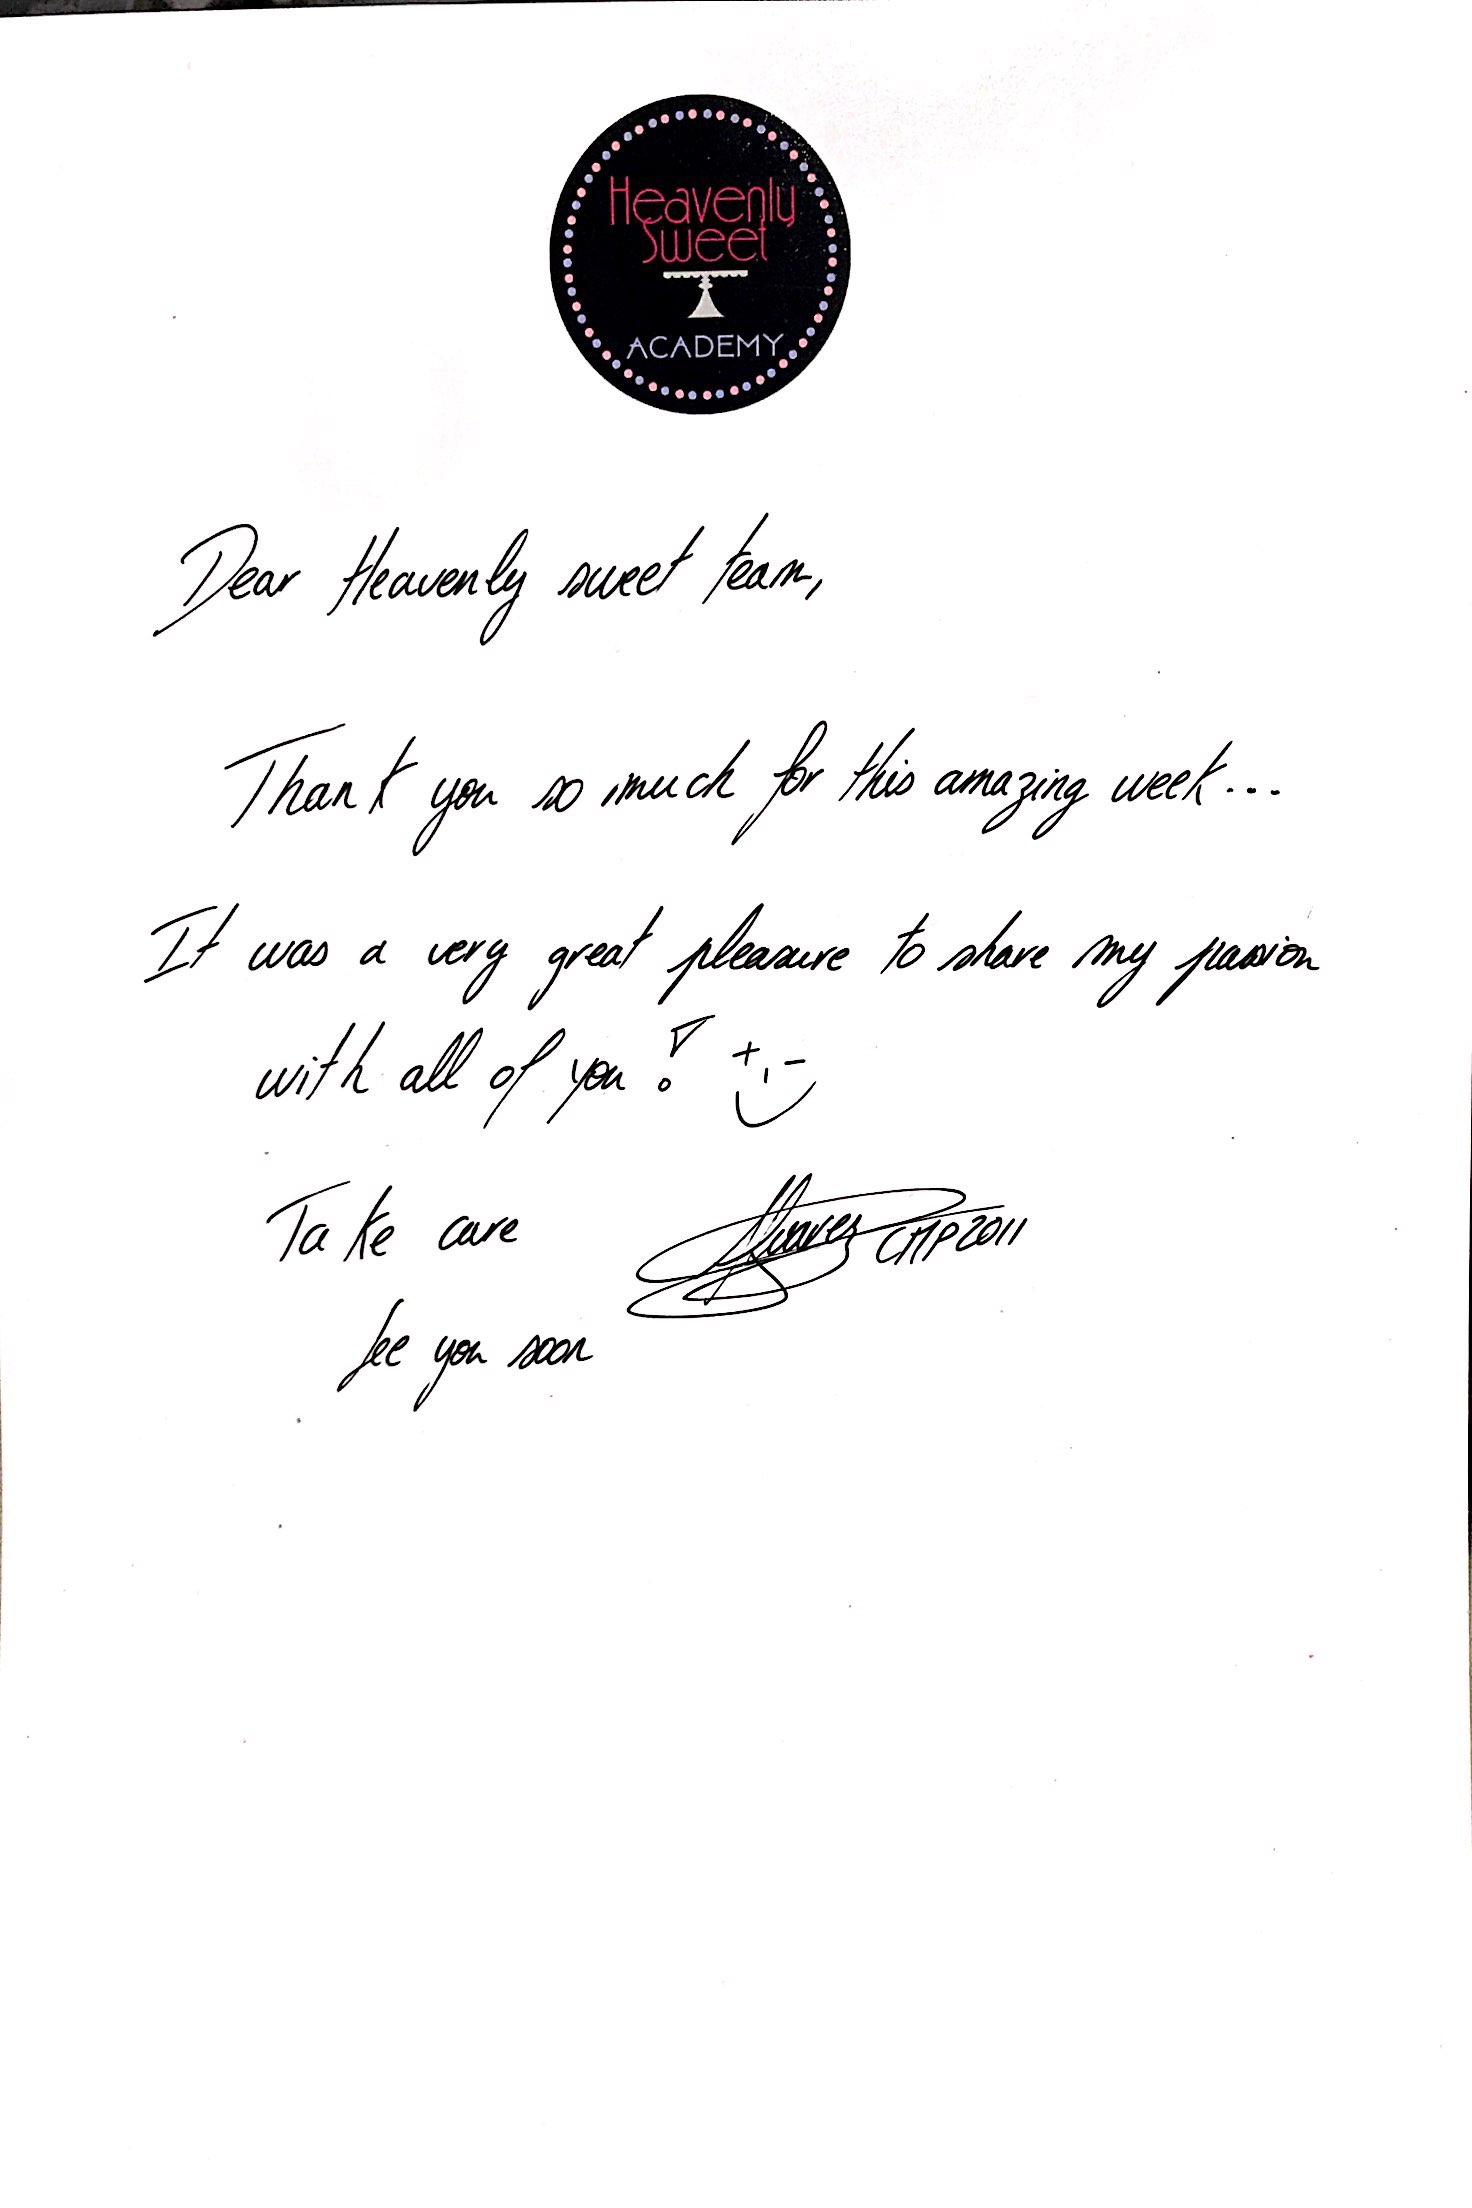 Heavenly
Sweet
ACADEMY
Dear Heavenly sweet team,
Thank you so much for this amazing week...
It was a very great pleasure to share my passion
with all of you!
Take care
Alvarez CMP2011
See you soon